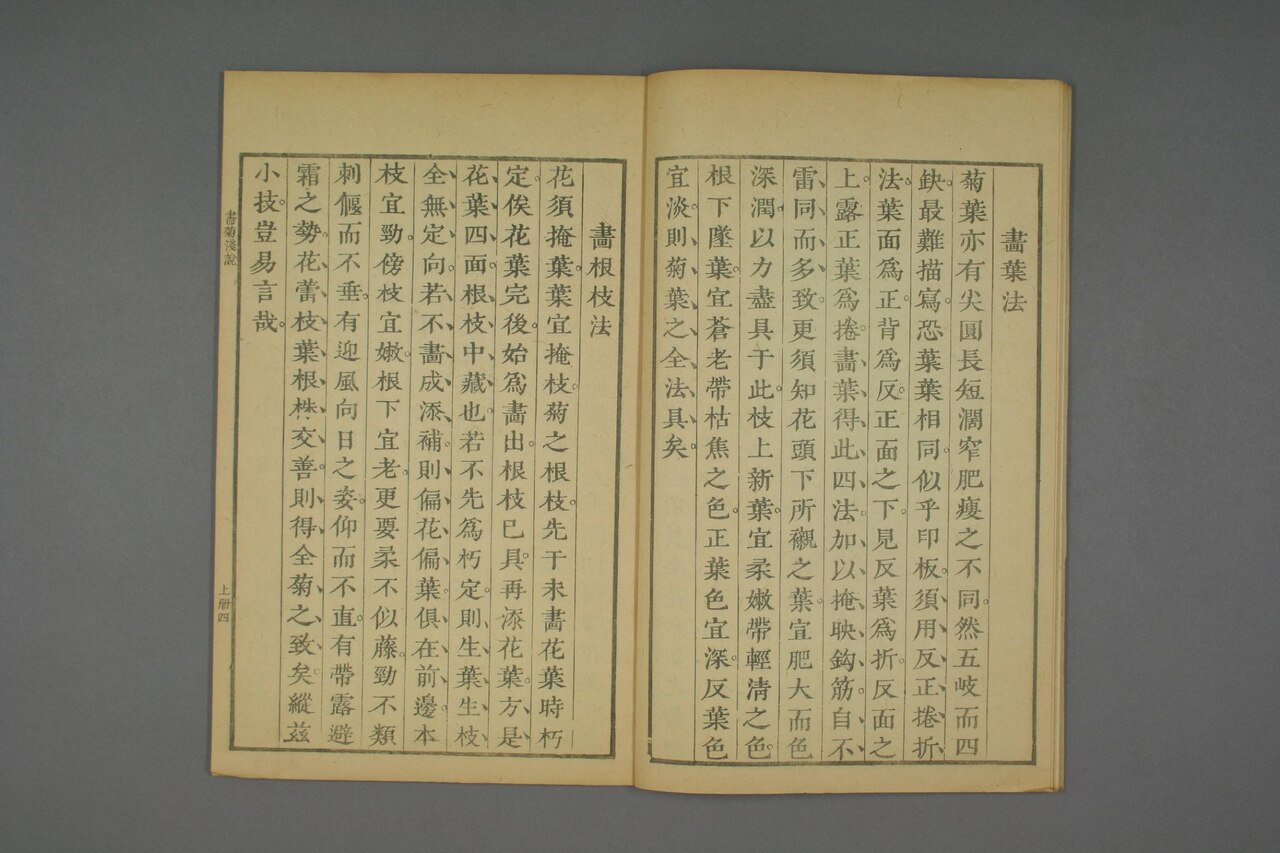 畵葉法
菊葉亦有尖圓長短濶窄肥瘦之不同。然五岐而四
缺。最難描寫。恐葉葉相同。似乎印板。須用反正捲折
法。葉面爲正。背爲反。正面之下。見反葉爲折。反面之
上。露正葉爲捲。畵葉得此四法。加以掩映鈎筋。自不
雷同而多致。更須知花頭下所襯之葉。宜肥大而色
深潤。以力盡具于此。枝上新葉。宜柔嫩帶輕淸之色。
根下墜葉。宜蒼老帶枯焦之色。正葉色宜深。反葉色
宜淡。則菊葉之全法具矣。
畵根枝法
花須掩葉。葉宜掩枝。菊之根枝。先于未畵花葉時朽
定。俟花葉完後。始爲畵出。根枝已具。再添花葉。方是
花葉四面。根枝中藏也。若不先爲朽定。則生葉生枝
全無定向。若不畵成添補。則偏花偏葉。俱在前邊。本
枝宜勁。傍枝宜嫩。根下宜老。更要柔不似藤。勁不類
刺。偃而不垂。有迎風向日之姿。仰而不直。有帶露避
霜之勢。花蕾枝葉根株交善。則得全菊之致矣。縱茲
小技。豈易言哉。
畵菊淺說
上册四